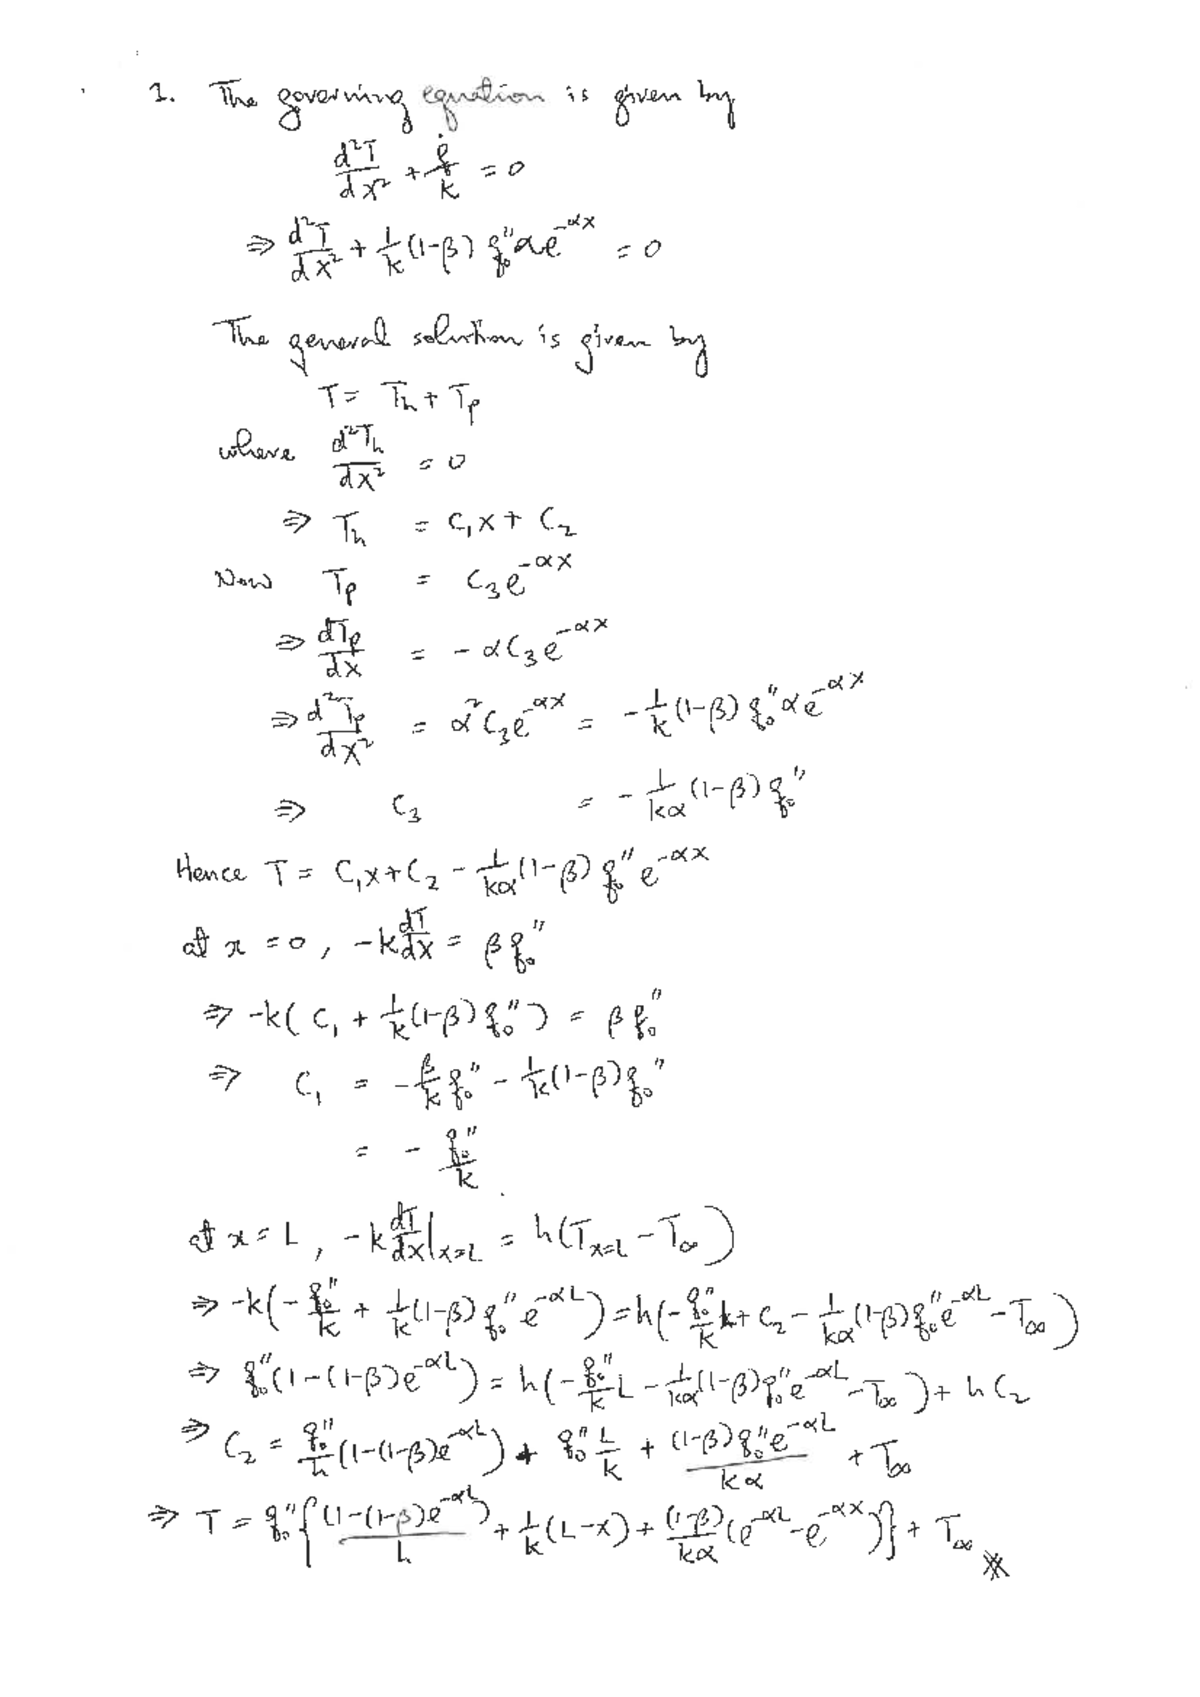 1. The governing equation is given by
d²T/dx² + q̇/k = 0
⇒ d²T/dx² + 1/k (1-β) q₀″αe^(-αx) = 0
The general solution is given by
T = Th + Tp
where d²Th/dx² = 0
⇒ Th = C₁x + C₂
Now Tp = C₃e^(-αx)
⇒ dTp/dx = -αC₃e^(-αx)
⇒ d²Tp/dx² = α²C₃e^(-αx) = -1/k (1-β) q₀″αe^(-αx)
⇒ C₃ = -1/kα (1-β) q₀″
Hence T = C₁x + C₂ - 1/kα (1-β) q₀″ e^(-αx)
at x = 0, -k dT/dx = βq₀″
⇒ -k( C₁ + 1/k (1-β) q₀″ ) = βq₀″
⇒ C₁ = -β/k q₀″ - 1/k (1-β) q₀″
= - q₀″/k
at x = L, -k dT/dx|x=L = h(Tx=L - T∞)
⇒ -k(- q₀″/k + 1/k (1-β) q₀″ e^(-αL)) = h(- q₀″/k L + C₂ - 1/kα (1-β) q₀″ e^(-αL) - T∞)
⇒ q₀″(1-(1-β)e^(-αL)) = h(- q₀″/k L - 1/kα (1-β) q₀″ e^(-αL) - T∞) + hC₂
⇒ C₂ = q₀″/h (1-(1-β)e^(-αL)) + q₀″ L/k + (1-β) q₀″ e^(-αL)/kα + T∞
⇒ T = q₀″{ (1-(1-β)e^(-αL))/h + 1/k (L-x) + (1-β)/kα (e^(-αL) - e^(-αx)) } + T∞